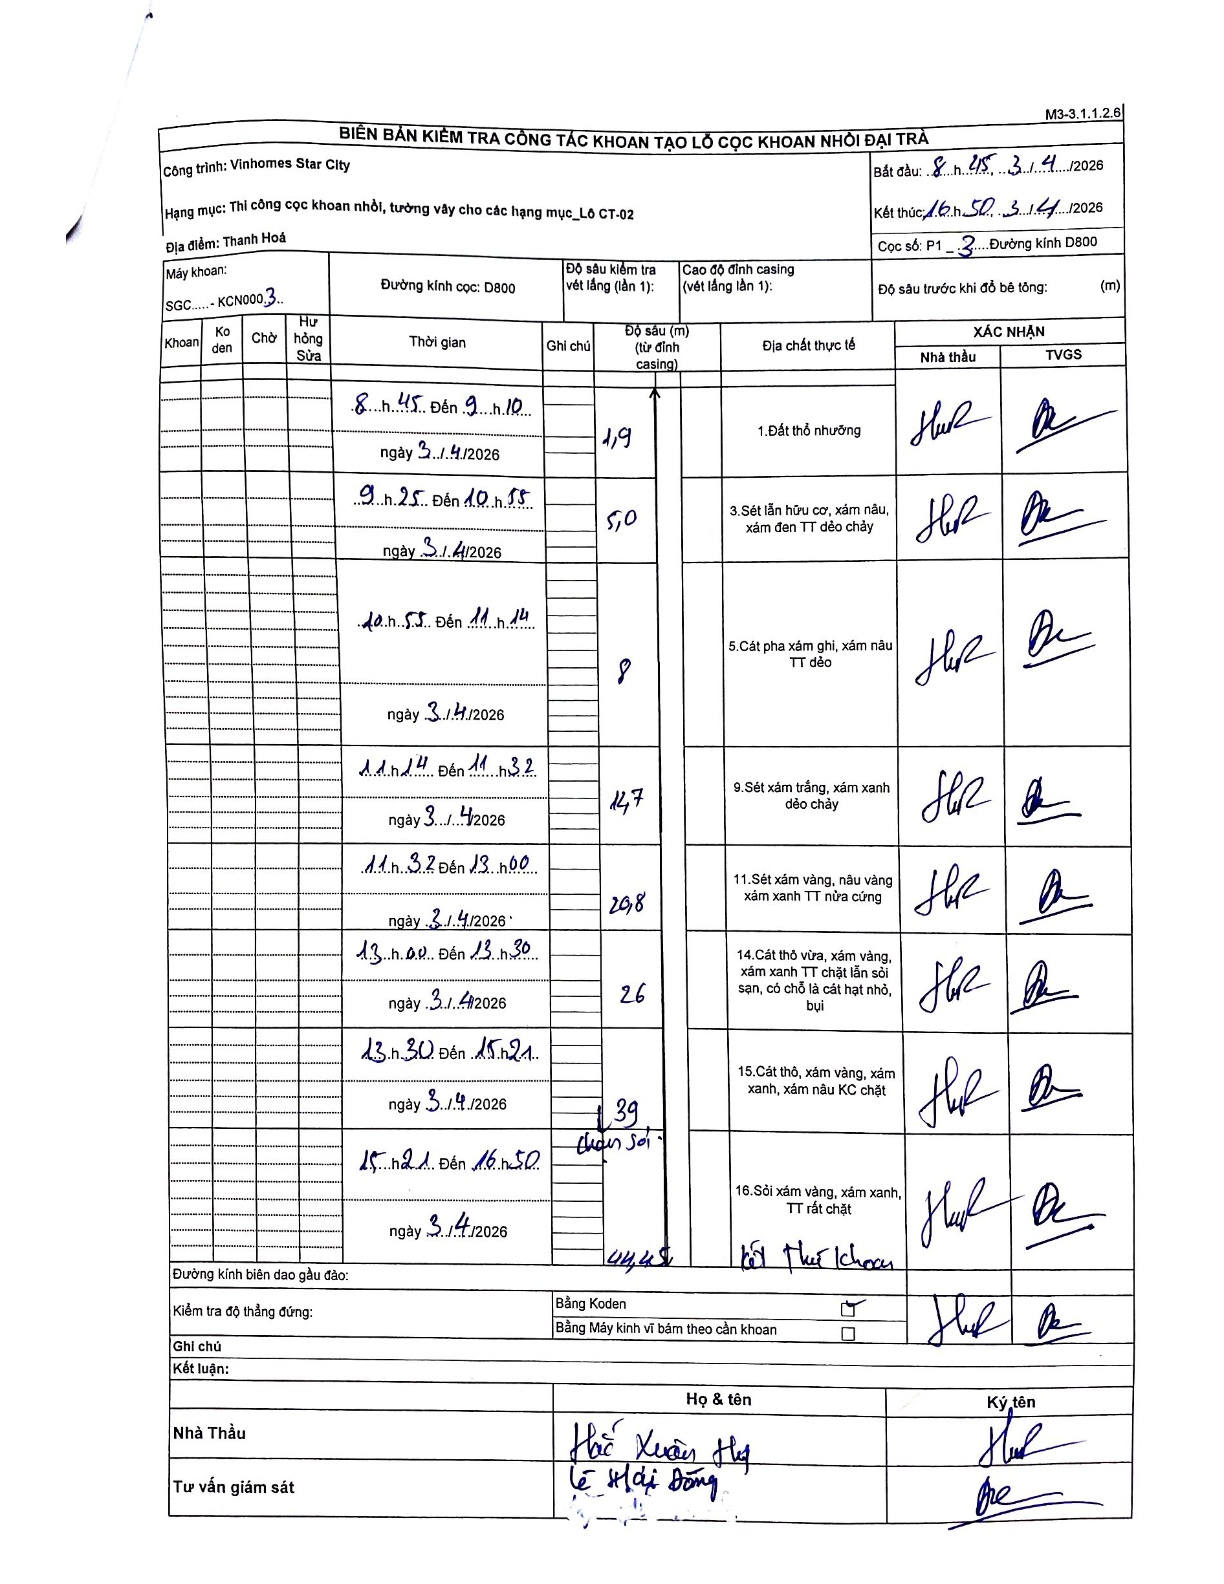 M3-3.1.1.2.6
BIÊN BẢN KIỂM TRA CÔNG TÁC KHOAN TẠO LỖ CỌC KHOAN NHỒI ĐẠI TRÀ
Công trình: Vinhomes Star City
Bắt đầu: 8 h 45, 3/4/2026
Hạng mục: Thi công cọc khoan nhồi, tường vây cho các hạng mục_Lô CT-02
Kết thúc: 16 h 50, 3/4/2026
Địa điểm: Thanh Hoá
Cọc số: P1_3....Đường kính D800
Máy khoan:
SGC.....- KCN0003..
Đường kính cọc: D800
Độ sâu kiểm tra vét lắng (lần 1):
Cao độ đỉnh casing (vét lắng lần 1):
Độ sâu trước khi đổ bê tông: (m)
Khoan
Ko den
Chờ
Hư hỏng Sửa
Thời gian
Ghi chú
Độ sâu (m) (từ đỉnh casing)
Địa chất thực tế
XÁC NHẬN
Nhà thầu
TVGS
8 h 45 Đến 9 h 10
ngày 3/4/2026
1,9
1.Đất thổ nhưỡng
9 h 25 Đến 10 h 55
ngày 3/4/2026
5,0
3.Sét lẫn hữu cơ, xám nâu,
xám đen TT dẻo chảy
10 h 55 Đến 11 h 14
ngày 3/4/2026
8
5.Cát pha xám ghi, xám nâu
TT dẻo
11 h 14 Đến 11 h 32
ngày 3/4/2026
9.Sét xám trắng, xám xanh
dẻo chảy
11 h 32 Đến 13 h 00
ngày 3/4/2026
20,8
11.Sét xám vàng, nâu vàng
xám xanh TT nửa cứng
13 h 00 Đến 13 h 30
ngày 3/4/2026
26
14.Cát thô vừa, xám vàng,
xám xanh TT chặt lẫn sỏi
sạn, có chỗ là cát hạt nhỏ,
bụi
13 h 30 Đến 15 h 21
ngày 3/4/2026
39
chạm sỏi
15.Cát thô, xám vàng, xám
xanh, xám nâu KC chặt
15 h 21 Đến 16 h 50
ngày 3/4/2026
44,45
16.Sỏi xám vàng, xám xanh,
TT rất chặt
kết thúc khoan
Đường kính biên dao gầu đào:
Kiểm tra độ thẳng đứng:
Bằng Koden
Bằng Máy kinh vĩ bám theo cần khoan
Ghi chú
Kết luận:
Họ & tên
Ký tên
Nhà Thầu
Xuân Huy
Tư vấn giám sát
Lê Đăng